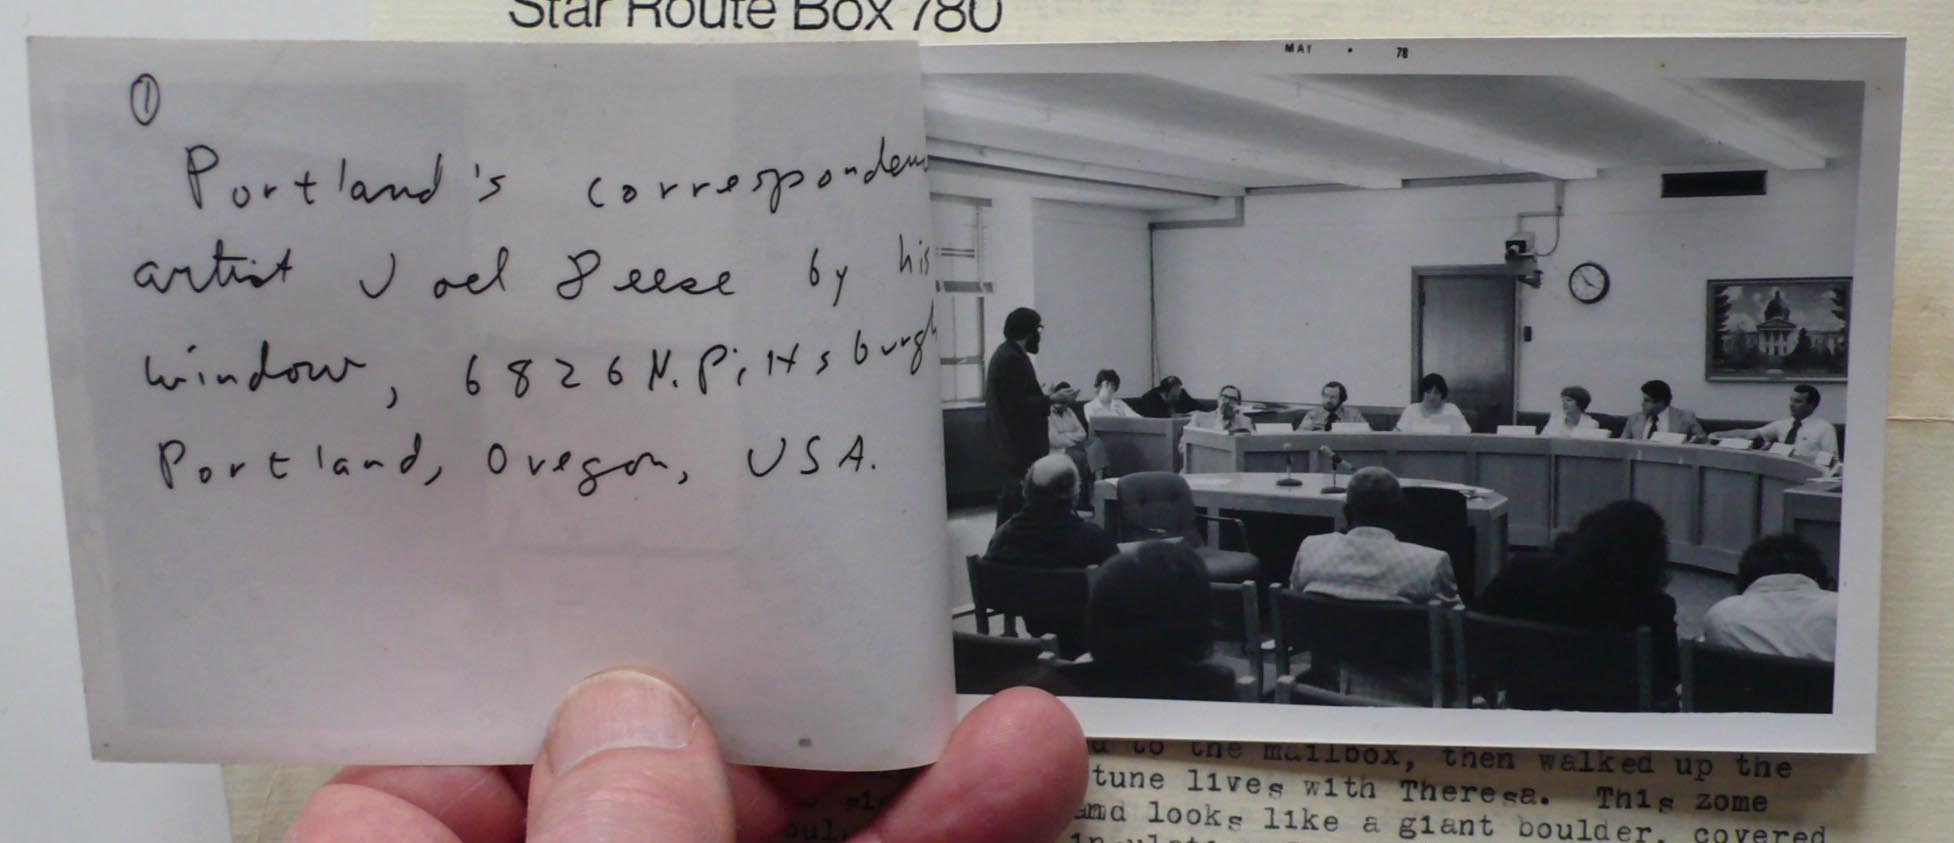 Star Route Box 780
MAY • 78
①
Portland's corresponden
artist Joel Beese by his
window, 6826 N. Pittsburgh
Portland, Oregon, USA.
to the mailbox, then walked up the
tune lives with Theresa. This zome
and looks like a giant boulder, covered